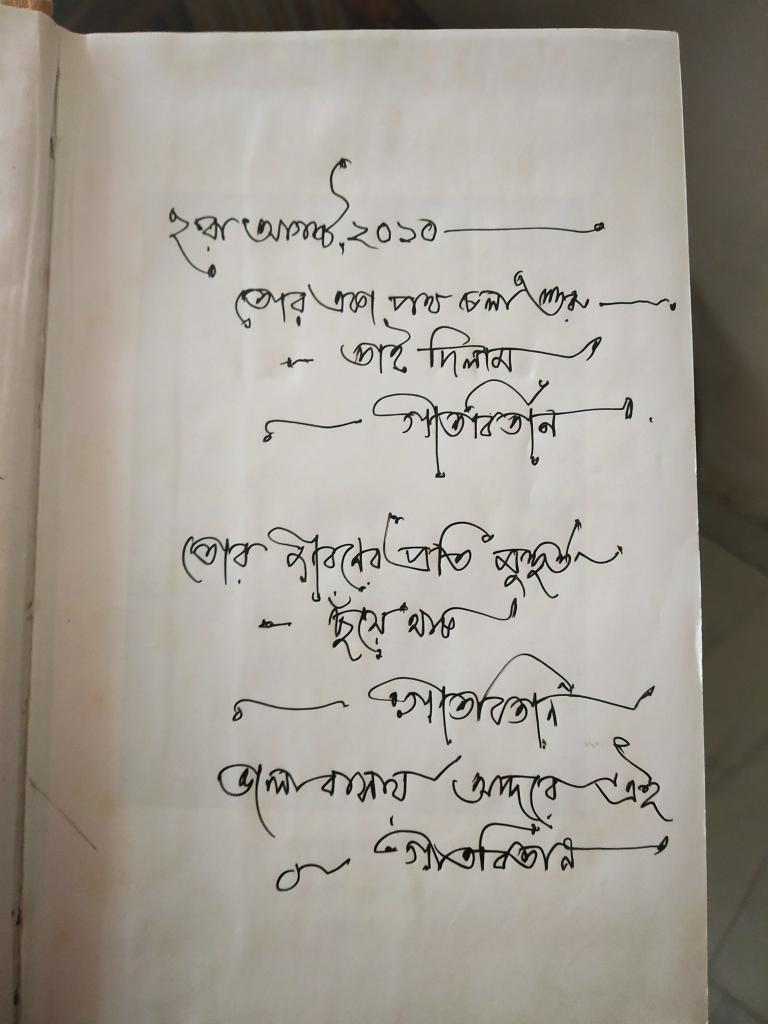 ২রা আগস্ট, ২০১০
তোর একা পথ চলা শুরু
- তাই দিলাম
গীতবিতান
তোর জীবনের প্রতি মুহূর্ত
- ছুঁয়ে থাক
গীতবিতান
ভালোবাসায় আদরে এই
গীতবিতান